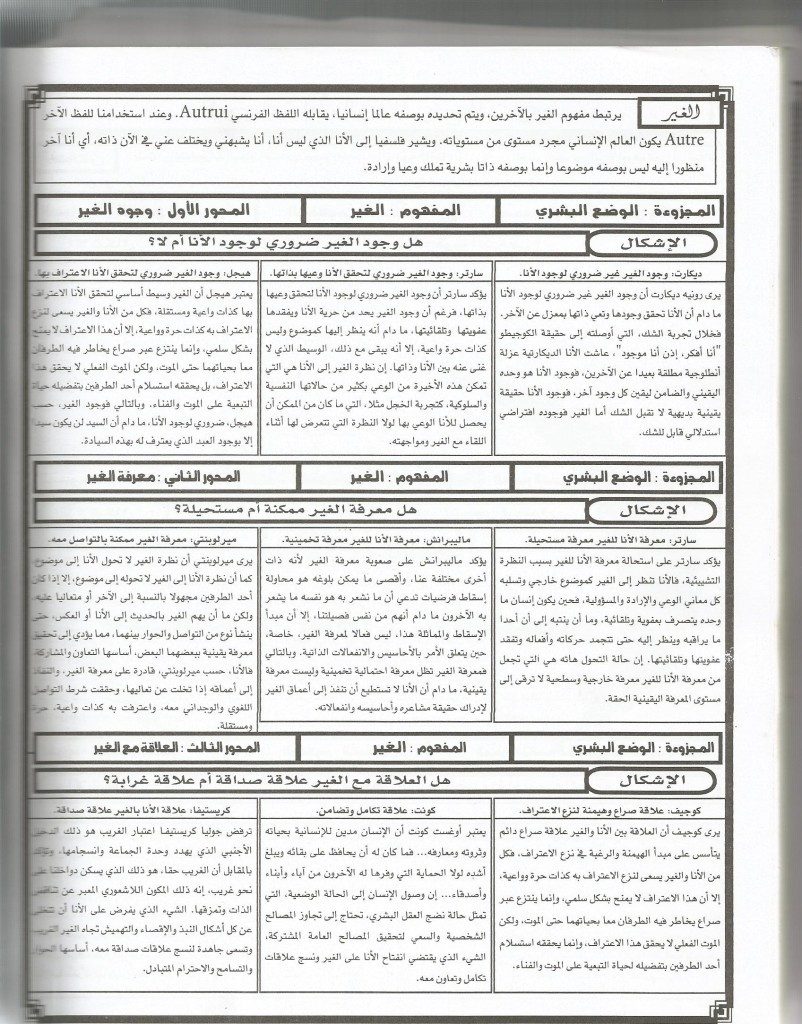 الغير
يرتبط مفهوم الغير بالآخرين، ويتم تحديده بوصفه عالما إنسانيا، يقابله اللفظ الفرنسي Autrui. وعند استخدامنا للفظ الآخر
Autre يكون العالم الإنساني مجرد مستوى من مستوياته. ويشير فلسفيا إلى الأنا الذي ليس أنا، أنا يشبهني ويختلف عني في الآن ذاته، أي أنا آخر
منظورا إليه ليس بوصفه موضوعا وإنما بوصفه ذاتا بشرية تملك وعيا وإرادة.
المجزوءة : الوضع البشري
المفهوم : الغير
المحور الأول : وجود الغير
الإشكال
هل وجود الغير ضروري لوجود الأنا أم لا؟
ديكارت: وجود الغير غير ضروري لوجود الأنا.
يرى رونيه ديكارت أن وجود الغير غير ضروري لوجود الأنا
ما دام أن الأنا تحقق وجودها وتعي ذاتها بمعزل عن الآخر.
فخلال تجربة الشك، التي أوصلته إلى حقيقة الكوجيطو
"أنا أفكر، إذن أنا موجود"، عاشت الأنا الديكارتية عزلة
أنطلوجية مطلقة بعيدا عن الآخرين، فوجود الأنا هو وحده
اليقيني والضامن ليقين كل وجود آخر. فوجود الأنا حقيقة
يقينية بديهية لا تقبل الشك أما الغير فوجوده افتراضي
استدلالي قابل للشك.
سارتر: وجود الغير ضروري لتحقق الأنا وعيها بذاتها.
يؤكد سارتر أن وجود الغير ضروري لوجود الأنا لتحقق وعيها
بذاتها. فرغم أن وجود الغير يحد من حرية الأنا ويفقدها
عفويتها وتلقائيتها، ما دام أنه ينظر إليها كموضوع وليس
كذات حرة واعية، إلا أنه يبقى مع ذلك، الوسيط الذي لا
غنى عنه بين الأنا وذاتها. إن نظرة الغير إلى الأنا هي التي
تمكن هذه الأخيرة من الوعي بكثير من حالاتها النفسية
والسلوكية، كتجربة الخجل مثلا، التي ما كان من الممكن أن
يحصل للأنا الوعي بها لولا النظرة التي تتعرض لها أثناء
اللقاء مع الغير ومواجهته.
هيجل: وجود الغير ضروري لتحقق الأنا الاعتراف بها.
يعتبر هيجل أن الغير وسيط أساسي لتحقق الأنا الاعتراف
بها كذات واعية ومستقلة، فكل من الأنا والغير يسعى لنزع
الاعتراف به كذات حرة وواعية، إلا أن هذا الاعتراف لا يمنح
بشكل سلمي، وإنما ينتزع عبر صراع يخاطر فيه الطرفان
معا بحياتهما حتى الموت، ولكن الموت الفعلي لا يحقق هذا
الاعتراف، بل يحققه استسلام أحد الطرفين بتفضيله حياة
التبعية على الموت والفناء. وبالتالي فوجود الغير، حسب
هيجل، ضروري لوجود الأنا، ما دام أن السيد لن يكون سيدا
إلا بوجود العبد الذي يعترف له بهذه السيادة.
المجزوءة : الوضع البشري
المفهوم : الغير
المحور الثاني : معرفة الغير
الإشكال
هل معرفة الغير ممكنة أم مستحيلة؟
سارتر: معرفة الأنا للغير معرفة مستحيلة.
يؤكد سارتر على استحالة معرفة الأنا للغير بسبب النظرة
التشييئية، فالأنا تنظر إلى الغير كموضوع خارجي وتسلبه
كل معاني الوعي والإرادة والمسؤولية، فحين يكون إنسان ما
وحده يتصرف بعفوية وتلقائية، وما أن ينتبه إلى أن أحدا
ما يراقبه وينظر إليه حتى تتجمد حركاته وأفعاله وتفقد
عفويتها وتلقائيتها. إن حالة التحول هاته هي التي تجعل
من معرفة الأنا للغير معرفة خارجية وسطحية لا ترقى إلى
مستوى المعرفة اليقينية الحقة.
ماليبرانش: معرفة الأنا للغير معرفة تخمينية.
يؤكد ماليبرانش على صعوبة معرفة الغير لأنه ذات
أخرى مختلفة عنا، وأقصى ما يمكن بلوغه هو محاولة
إسقاط فرضيات تدعي أن ما نشعر به هو نفسه ما يشعر
به الآخرون ما دام أنهم من نفس فصيلتنا، إلا أن مبدأ
الإسقاط والمماثلة هذا، ليس فعالا لمعرفة الغير، خاصة،
حين يتعلق الأمر بالأحاسيس والانفعالات الذاتية. وبالتالي
فمعرفة الغير تظل معرفة احتمالية تخمينية وليست معرفة
يقينية، ما دام أن الأنا لا تستطيع أن تنفذ إلى أعماق الغير
لإدراك حقيقة مشاعره وأحاسيسه وانفعالاته.
ميرلوبنتي: معرفة الغير ممكنة بالتواصل معه.
يرى ميرلوبنتي أن نظرة الغير لا تحول الأنا إلى موضوع،
كما أن نظرة الأنا إلى الغير لا تحوله إلى موضوع، إلا إذا كان
أحد الطرفين مجهولا بالنسبة إلى الآخر أو متعاليا عليه،
ولكن ما أن يهم الغير بالحديث إلى الأنا أو العكس، حتى
ينشأ نوع من التواصل والحوار بينهما، مما يؤدي إلى تحقيق
معرفة يقينية ببعضهما البعض، أساسها التعاون والمشاركة.
فالأنا، حسب ميرلوبنتي، قادرة على معرفة الغير، والنفاذ
إلى أعماقه إذا تخلت عن تعاليها، وحققت شرط التواصل
اللغوي والوجداني معه، واعترفت به كذات واعية، حرة
ومستقلة.
المجزوءة : الوضع البشري
المفهوم : الغير
المحور الثالث : العلاقة مع الغير
الإشكال
هل العلاقة مع الغير علاقة صداقة أم علاقة غرابة؟
كوجيف: علاقة صراع وهيمنة لنزع الاعتراف.
يرى كوجيف أن العلاقة بين الأنا والغير علاقة صراع دائم
يتأسس على مبدأ الهيمنة والرغبة في نزع الاعتراف، فكل
من الأنا والغير يسعى لنزع الاعتراف به كذات حرة وواعية،
إلا أن هذا الاعتراف لا يمنح بشكل سلمي، وإنما ينتزع عبر
صراع يخاطر فيه الطرفان معا بحياتهما حتى الموت، ولكن
الموت الفعلي لا يحقق هذا الاعتراف، وإنما يحققه استسلام
أحد الطرفين بتفضيله لحياة التبعية على الموت والفناء.
كونت: علاقة تكامل وتضامن.
يعتبر أوغست كونت أن الإنسان مدين للإنسانية بحياته
وثروته ومعارفه... فما كان له أن يحافظ على بقائه ويبلغ
أشده لولا الحماية التي وفرها له الآخرون من آباء وأبناء
وأصدقاء... إن وصول الإنسان إلى الحالة الوضعية، التي
تمثل حالة نضج العقل البشري، تحتاج إلى تجاوز المصالح
الشخصية والسعي لتحقيق المصالح العامة المشتركة،
الشيء الذي يقتضي انفتاح الأنا على الغير ونسج علاقات
تكامل وتعاون معه.
كريستيفا: علاقة الأنا بالغير علاقة صداقة.
ترفض جوليا كريستيفا اعتبار الغريب هو ذلك الدخيل
الأجنبي الذي يهدد وحدة الجماعة وانسجامها. وتؤكد
بالمقابل أن الغريب حقا، هو ذلك الذي يسكن دواخلنا على
نحو غريب، إنه ذلك المكون اللاشعوري المعبر عن تناقض
الذات وتمزقها. الشيء الذي يفرض على الأنا أن تتخلى
عن كل أشكال النبذ والإقصاء والتهميش تجاه الغير الغريب
وتسعى جاهدة لنسج علاقات صداقة معه، أساسها الحوار
والتسامح والاحترام المتبادل.